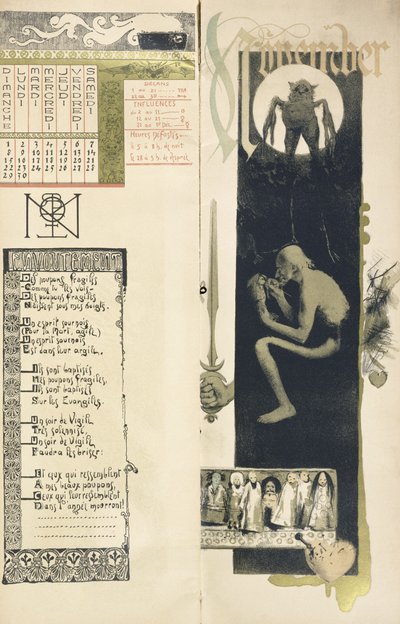 November
DIMANCHE LUNDI MARDI MERCREDI JEUDI VENDREDI SAMEDI
1 2 3 4 5 6 7
8 9 10 11 12 13 14
15 16 17 18 19 20 21
22 23 24 25 26 27 28
29 30
DECANS
1 au 21
22 au 30
INFLUENCES
du 2 au 11
12 au 21
HEURES NÉFASTES
le 5 à 8 h. de nuit
le 28 à 5 h. de
ENVOUTEMENT
Des poupons fragiles
Comme tu les vois
Des poupons fragiles
Naissent sous mes doigts.
Un esprit sournois
(Pour la Mart, agile)
Un esprit sournois
Est dans leur argile.
Ils sont baptisés
Mes poupons fragiles,
Ils sont baptisés
Sur les Evangiles.
Un soir de Vigile
Très solennisé
Un soir de Vigile
Faudra les briser:
Et ceux qui ressemblent
A mes beaux poupons,
Ceux qui leur ressemblent
Dans l'année mourront!